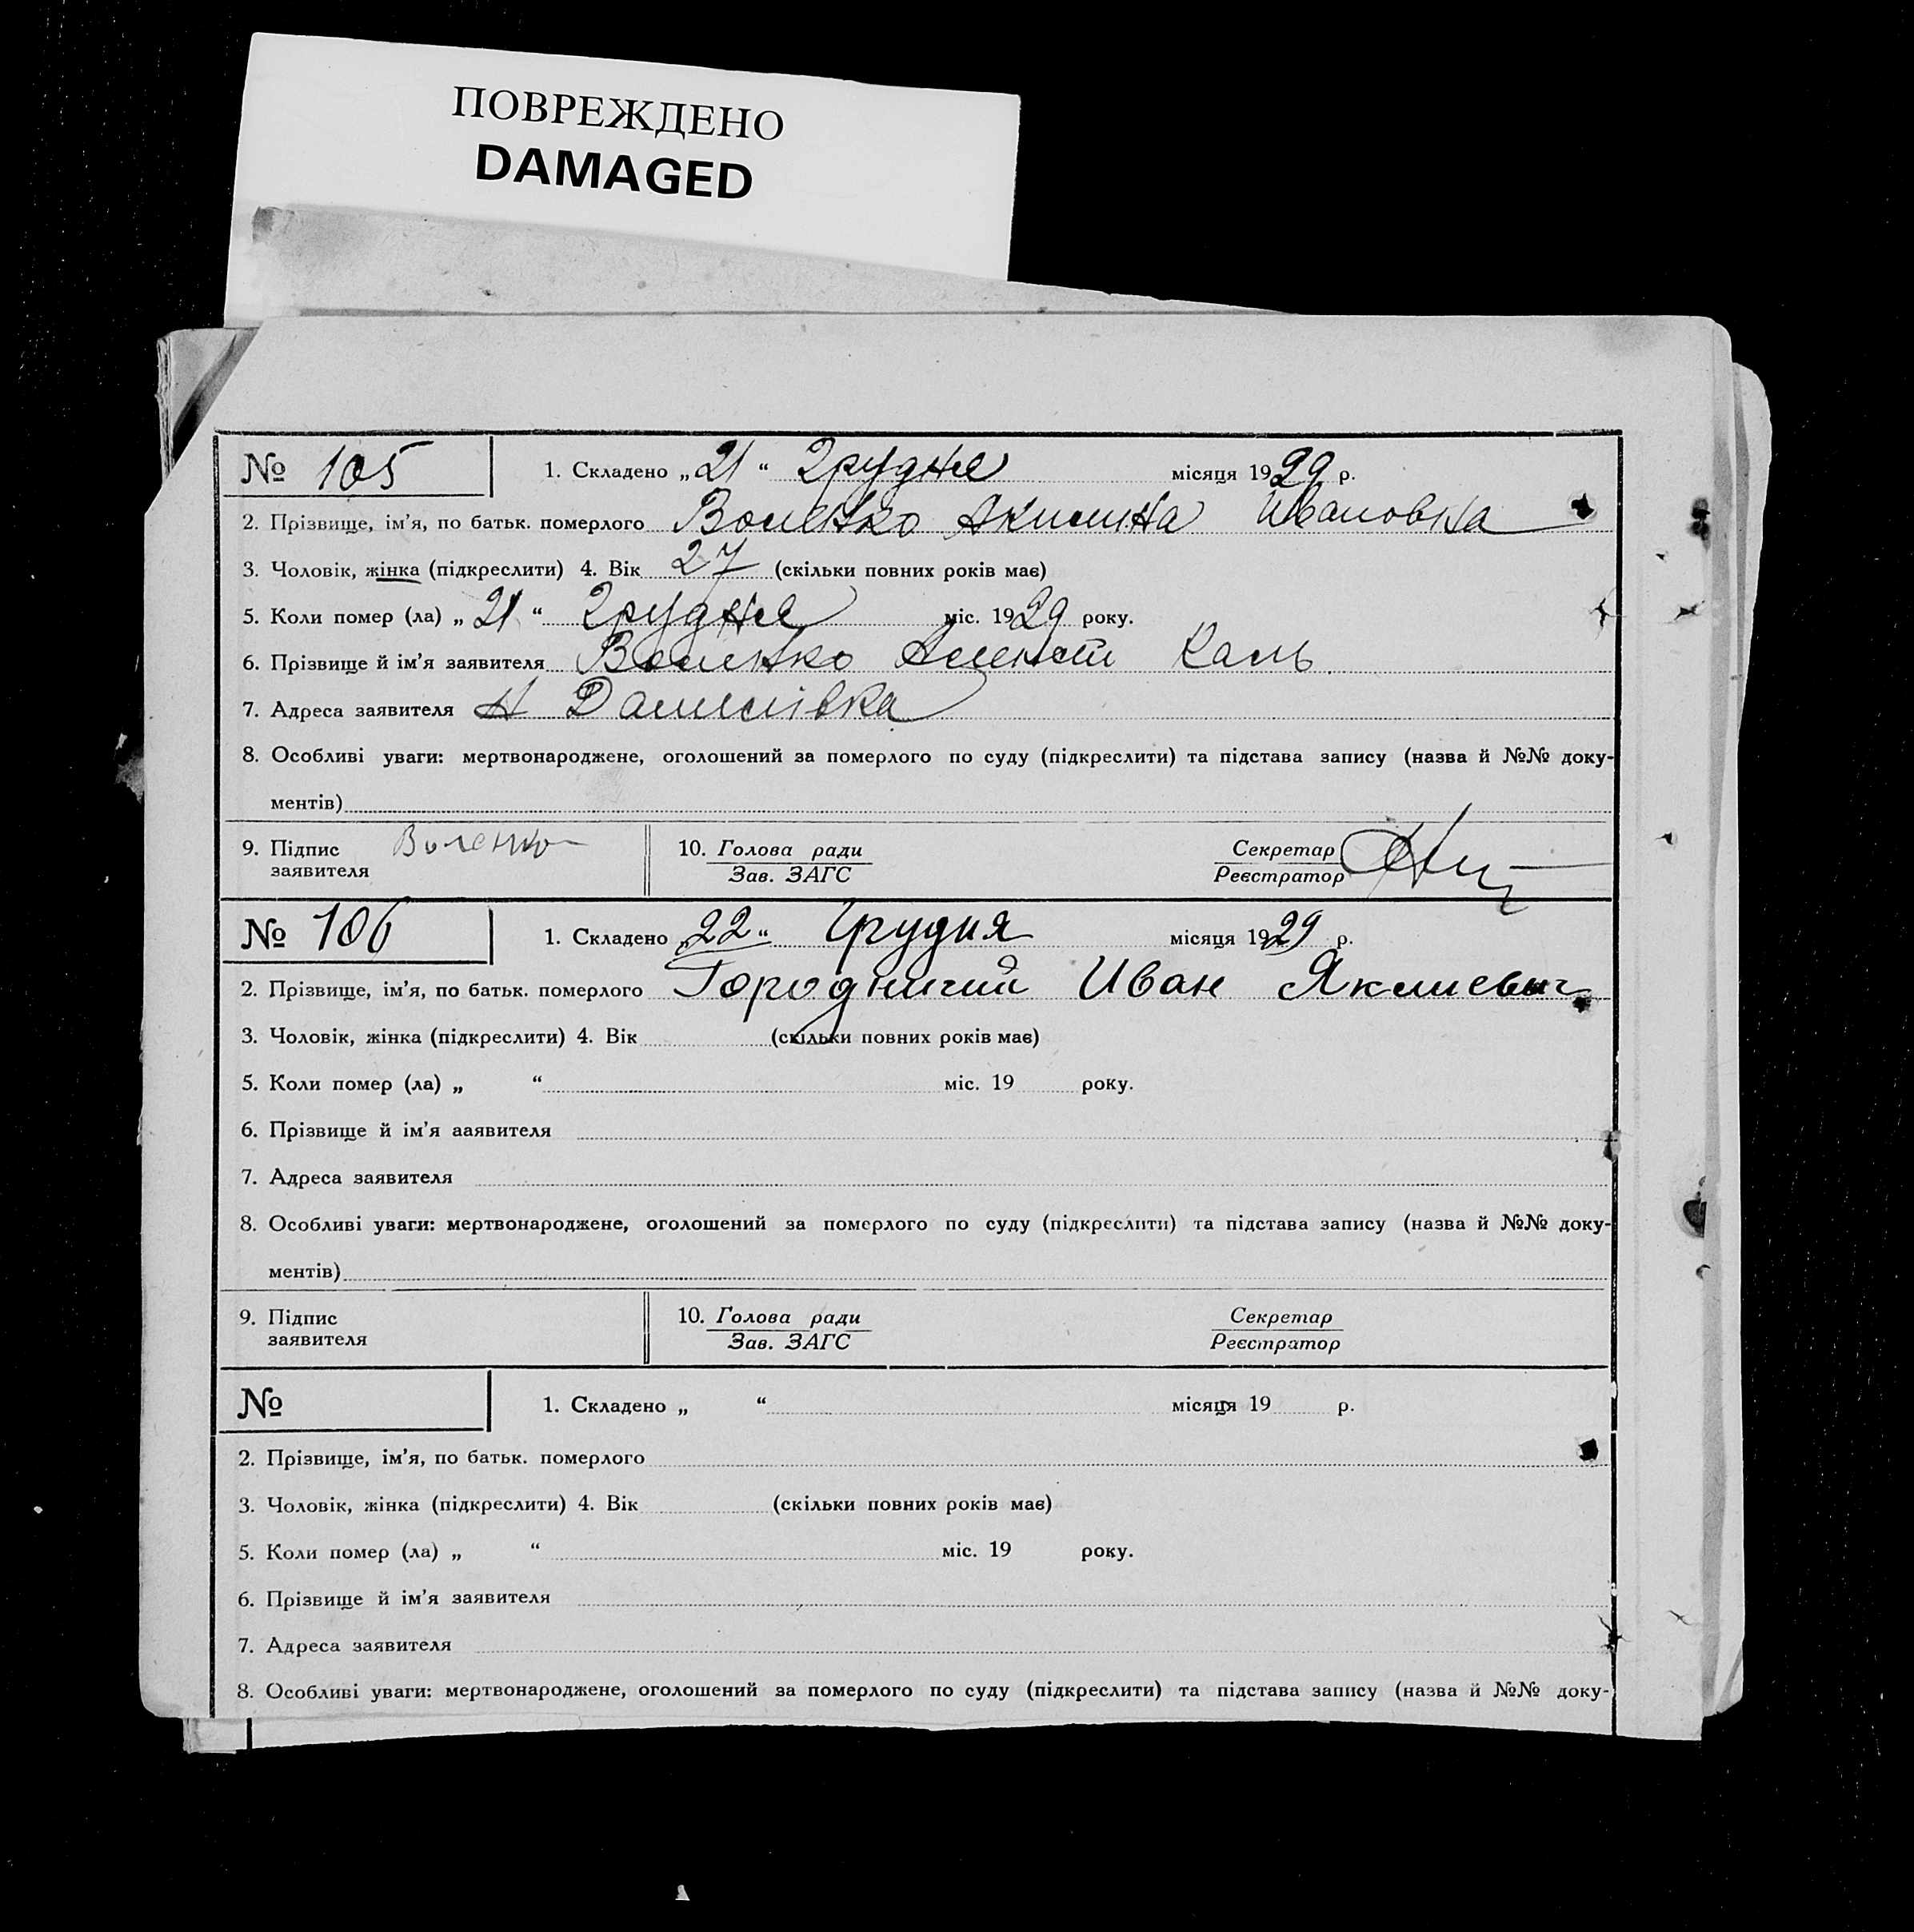 ПОВРЕЖДЕНО
DAMAGED
№ 105 1. Складено „21“ Грудня місяця 1929 р.
2. Прізвище, ім'я, по батьк. померлого Воленко Акилина Ивановна
3. Чоловік, жінка (підкреслити) 4. Вік 27 (скільки повних років має)
5. Коли помер (ла) „21“ Грудня міс. 1929 року.
6. Прізвище й ім'я заявителя Воленко
7. Адреса заявителя Н Данилівка
8. Особливі уваги: мертвонароджене, оголошений за померлого по суду (підкреслити) та підстава запису (назва й №№ доку-
ментів)
9. Підпис заявителя Воленко 10. Голова ради Секретар
Зав. ЗАГС Реєстратор
№ 106 1. Складено „22“ Грудня місяця 1929 р.
2. Прізвище, ім'я, по батьк. померлого Городничий Иван
3. Чоловік, жінка (підкреслити) 4. Вік (скільки повних років має)
5. Коли помер (ла) „ “ міс. 19 року.
6. Прізвище й ім'я ааявителя
7. Адреса заявителя
8. Особливі уваги: мертвонароджене, оголошений за померлого по суду (підкреслити) та підстава запису (назва й №№ доку-
ментів)
9. Підпис заявителя 10. Голова ради Секретар
Зав. ЗАГС Реєстратор
№ 1. Складено „ “ місяця 19 р.
2. Прізвище, ім'я, по батьк. померлого
3. Чоловік, жінка (підкреслити) 4. Вік (скільки повних років має)
5. Коли помер (ла) „ “ міс. 19 року.
6. Прізвище й ім'я заявителя
7. Адреса заявителя
8. Особливі уваги: мертвонароджене, оголошений за померлого по суду (підкреслити) та підстава запису (назва й №№ доку-